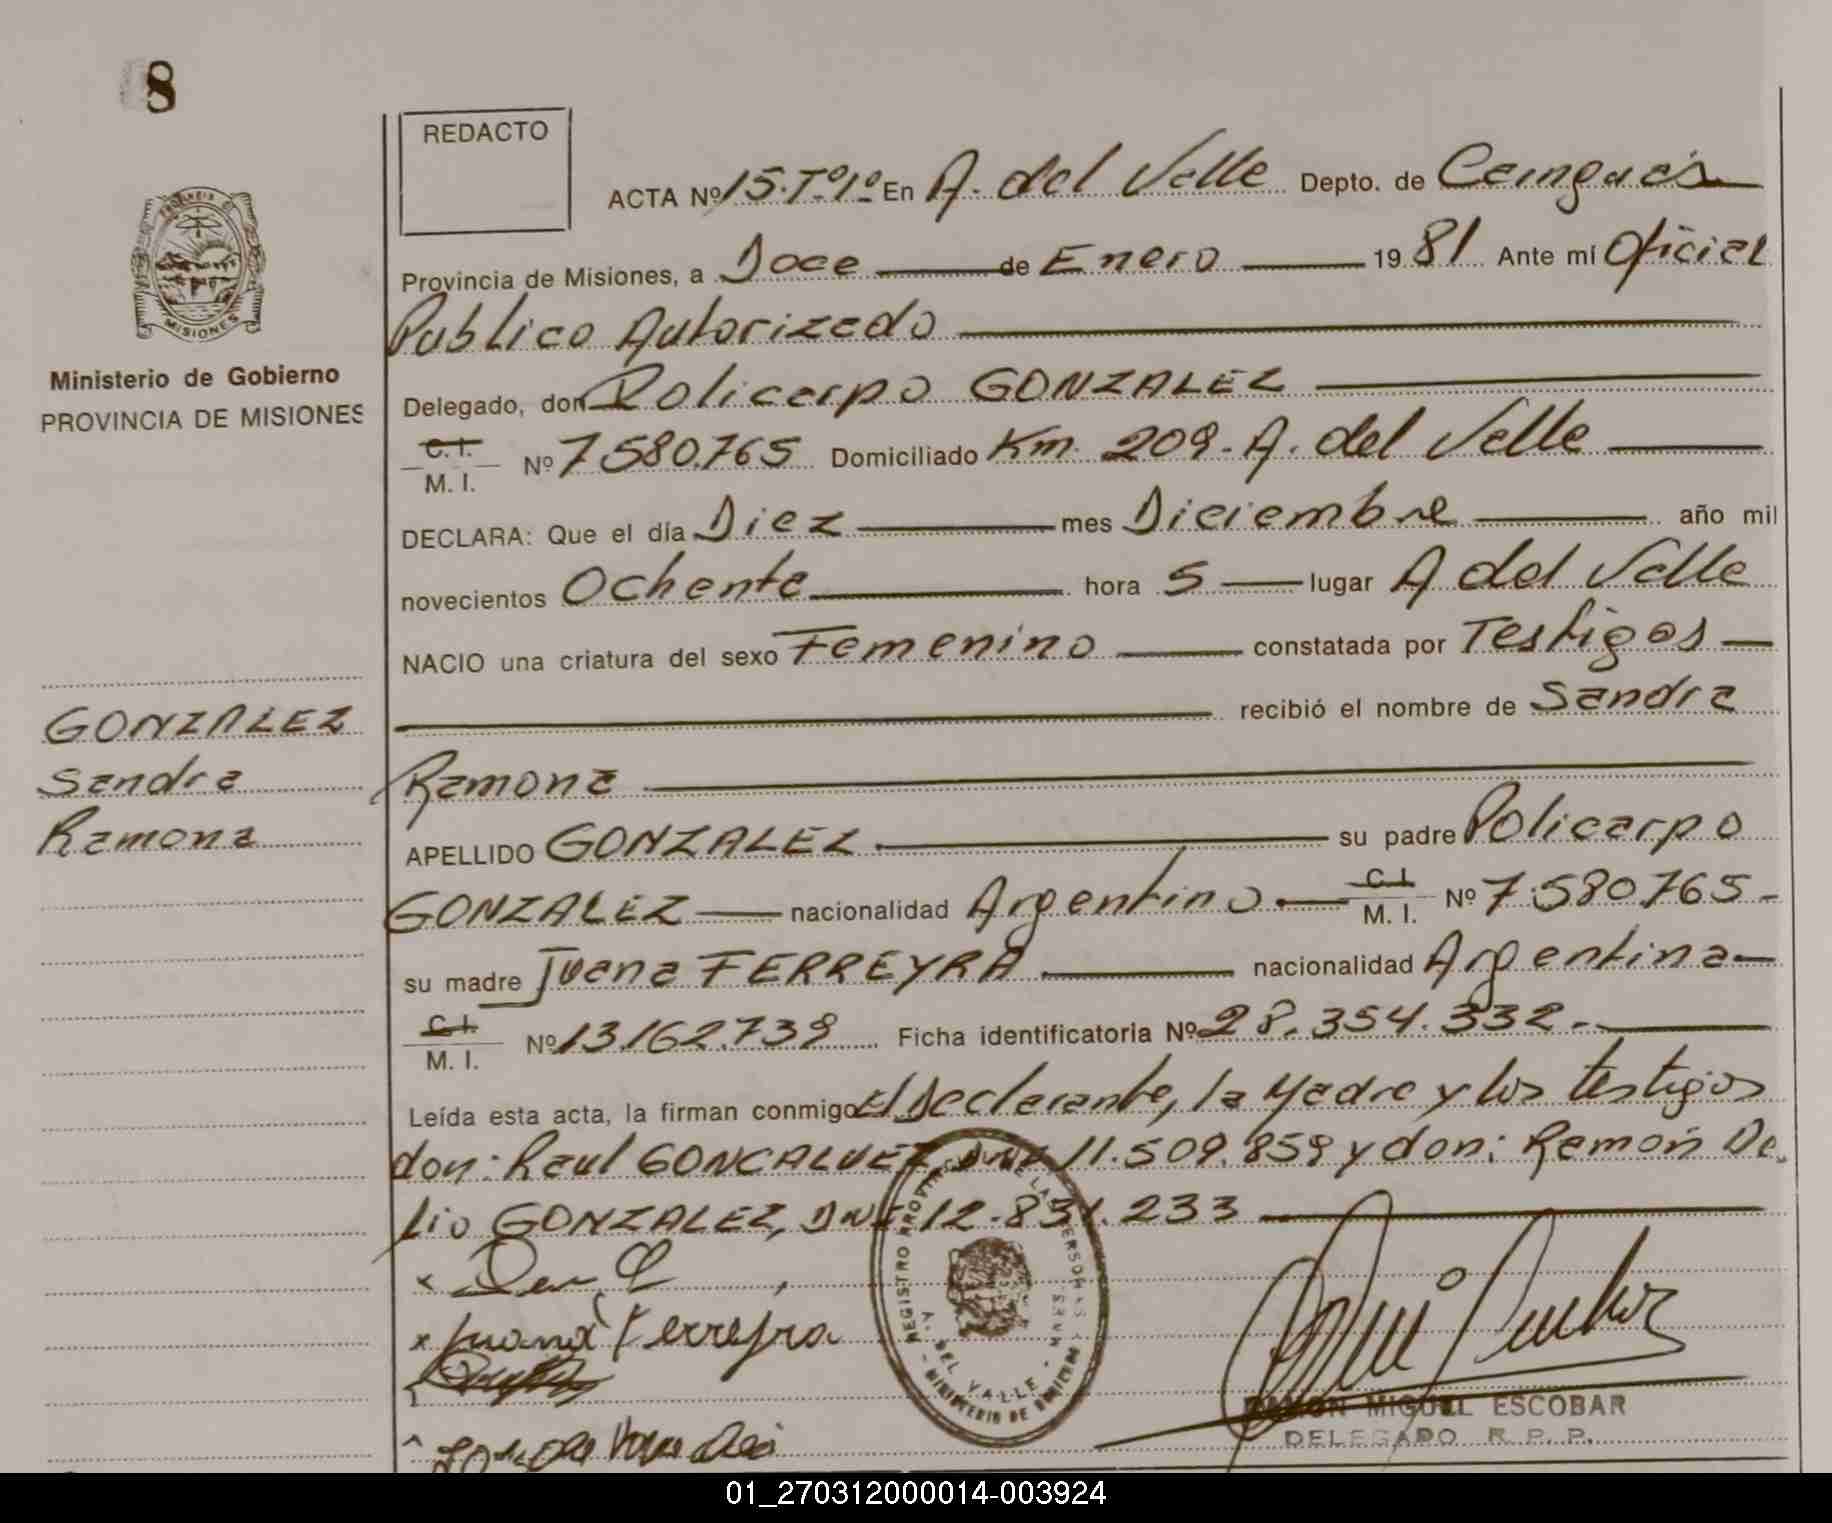 8
REDACTO
ACTA Nº 15.Tº1º En A. del Valle Depto. de Cainguás
Provincia de Misiones, a Doce de Enero 1981 Ante mí Oficial
Publico Autorizado
MISIONES
Ministerio de Gobierno
PROVINCIA DE MISIONES
Delegado, don Policarpo GONZALEZ
C. I.
M. I. Nº 7580.765 Domiciliado Km. 209 - A. del Valle
DECLARA: Que el día Diez mes Diciembre año mil
novecientos Ochenta hora 5 lugar A del Valle
NACIO una criatura del sexo Femenino constatada por Testigos
recibió el nombre de Sandra
Ramona
GONZALEZ
Sandra
Ramona
APELLIDO GONZALEZ su padre Policarpo
GONZALEZ nacionalidad Argentino C. I. M. I. Nº 7.580.765-
su madre Juana FERREYRA nacionalidad Argentina
C. I.
M. I. Nº 13.162.739 Ficha identificatoria Nº 28.354.332.-
Leída esta acta, la firman conmigo El Declarante, la Madre y los testigos
don: Raul GONCALVEZ, DNI 11.509.859 y don: Ramón De
lio GONZALEZ, DNI 12.831.233
x Juana Ferreyra
REGISTRO PROVINCIAL DE LAS PERSONAS
A. DEL VALLE
MINISTERIO DE GOBIERNO
RAMON MIGUEL ESCOBAR
DELEGADO R. P. P.
01_270312000014-003924